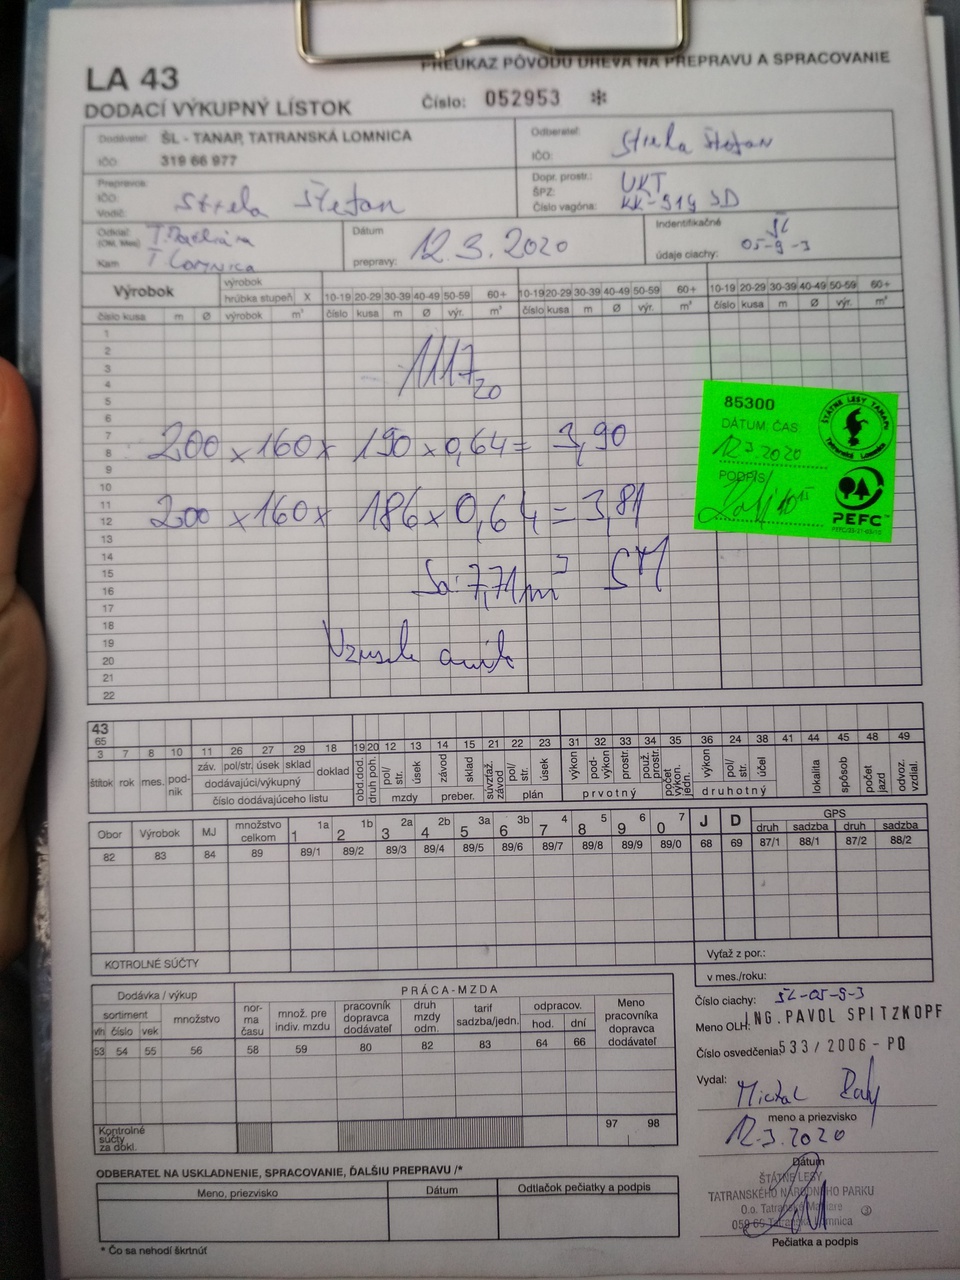 PREUKAZ PÔVODU DREVA NA PREPRAVU A SPRACOVANIE
LA 43
DODACÍ VÝKUPNÝ LÍSTOK
Číslo: 052953 ✻
Dodávateľ: ŠL - TANAP, TATRANSKÁ LOMNICA
IČO: 319 66 977
Odberateľ: Strela Štefan
IČO:
Prepravca:
IČO:
Vodič: Strela Štefan
Dopr. prostr.: UKT
ŠPZ: KK-514 SD
Číslo vagóna:
Odkiaľ:
Kam T Lomnica
Dátum
prepravy: 12.3.2020
Indentifikačné ŠL
údaje ciachy: 05-9-3
Výrobok výrobok
hrúbka stupeň X 10-19 20-29 30-39 40-49 50-59 60+ 10-19 20-29 30-39 40-49 50-59 60+ 10-19 20-29 30-39 40-49 50-59 60+
číslo kusa m Ø výrobok m³ číslo kusa m Ø výr. m³ číslo kusa m Ø výr. m³ číslo kusa m Ø výr. m³
1
2
3
1117 20
4
5
6
7
8
200 x 160 x 190 x 0,64 = 3,90
9
10
11
12
200 x 160 x 186 x 0,64 = 3,81
13
14
15
16
Sa: 7,71 m³ SM
17
18
19
20
21
22
85300
DÁTUM, ČAS
12.3.2020
PODPIS
ŠTÁTNE LESY TANAPU
Tatranská Lomnica
PEFC
43
65
3 7 8 10 11 26 27 29 18 19 20 12 13 14 15 21 22 23 31 32 33 34 35 36 24 38 41 44 45 48 49
štítok rok mes. pod-nik záv. pol/str. úsek sklad doklad obd.dod. druh poh. pol/str. úsek závod sklad súvzťaž. závod pol/str. úsek výkon pod-výkon prostr. použ. prostr. počet výkon. jedn. výkon pol/str. účel lokalita spôsob počet jazd odvoz. vzdial.
dodávajúci/výkupný
číslo dodávajúceho listu mzdy preber. plán prvotný druhotný
Obor Výrobok MJ množstvo celkom 1 1a 2 1b 3 2a 4 2b 5 3a 6 3b 7 4 8 5 9 6 0 7 J D GPS
druh sadzba druh sadzba
82 83 84 89 89/1 89/2 89/3 89/4 89/5 89/6 89/7 89/8 89/9 89/0 68 69 87/1 88/1 87/2 88/2
KOTROLNÉ SÚČTY
Vyťaž z por.:
v mes./roku:
Dodávka / výkup PRÁCA-MZDA
sortiment množstvo nor-ma času množ. pre indiv. mzdu pracovník dopravca dodávateľ druh mzdy odm. tarif sadzba/jedn. odpracov. Meno pracovníka dopravca dodávateľ
vlh číslo vek hod. dní
53 54 55 56 58 59 80 82 83 64 66
Kontrolné súčty za dokl. 97 98
Číslo ciachy: ŠL-05-9-3
Meno OLH: ING. PAVOL SPITZKOPF
Číslo osvedčenia 533 / 2006 - PO
Vydal: Michal
meno a priezvisko
12.3.2020
Dátum
ŠTÁTNE LESY
TATRANSKÉHO NÁRODNÉHO PARKU
059 65 Tatranská Lomnica
Pečiatka a podpis
ODBERATEĽ NA USKLADNENIE, SPRACOVANIE, ĎALŠIU PREPRAVU /*
Meno, priezvisko Dátum Odtlačok pečiatky a podpis
* Čo sa nehodí škrtnúť